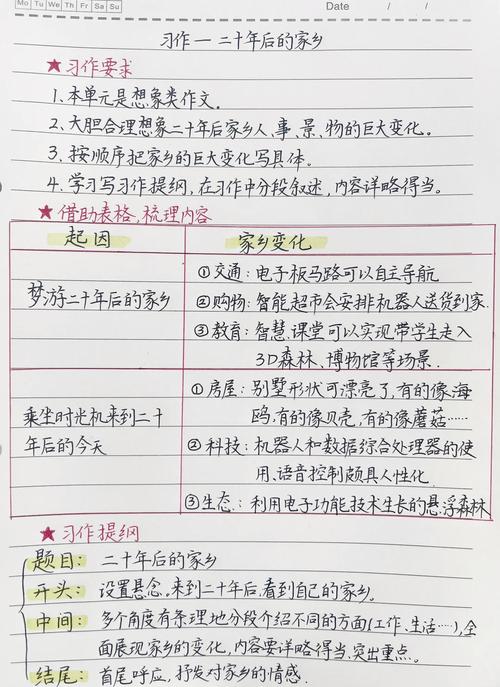 Mo Tu We Th Fr Sa Su
Date / /
习作一二十年后的家乡
★习作要求
1、本单元是想象类作文。
2、大胆合理想象二十年后家乡人、事、景、物的巨大变化。
3、按顺序把家乡的巨大变化写具体。
4、学习写习作提纲,在习作中分段叙述,内容详略得当。
★借助表格,梳理内容
起因
家乡变化
梦游二十年后的家乡
①交通:电子板马路可以自主导航
②购物:智能超市会安排机器人送货到家.
③教育:智慧课堂可以实现带学生走入
3D森林、博物馆等场景.
乘坐时光机来到二十
年后的今天
①房屋:别墅形状可漂亮了,有的像海
鸥,有的像贝壳,有的像蘑菇……
②科技:机器人和数据综合处理器的使
用、语音控制颇具人性化
③生态:利用电子功能技术生长的悬浮森林
★习作提纲
题目:二十年后的家乡
开头:设置悬念,来到二十年后,看到自己的家乡。
中间:多个角度有条理地分段介绍不同的方面(工作、生活……),全
面展现家乡的变化,内容要详略得当,突出重点。
结尾:首尾呼应,抒发对家乡的情感.